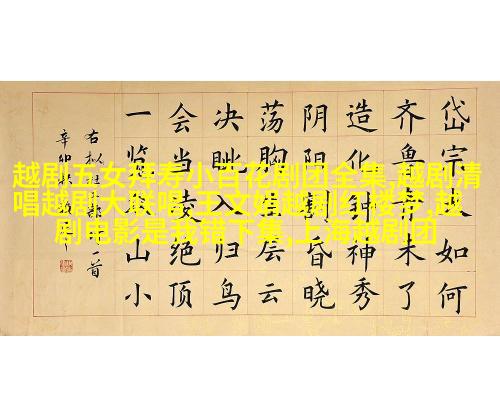 越剧五女拜寿小百花剧团全集,越剧清
唱越剧大联唱,王文娟越剧红楼梦,越
剧电影是我错下集,上海越剧团
岱宗夫如何
齐鲁青未了
造化钟神秀
阴阳割昏晓
荡胸生层云
决眦入归鸟
会当凌绝顶
一览众山小
右拟一首
辛卯